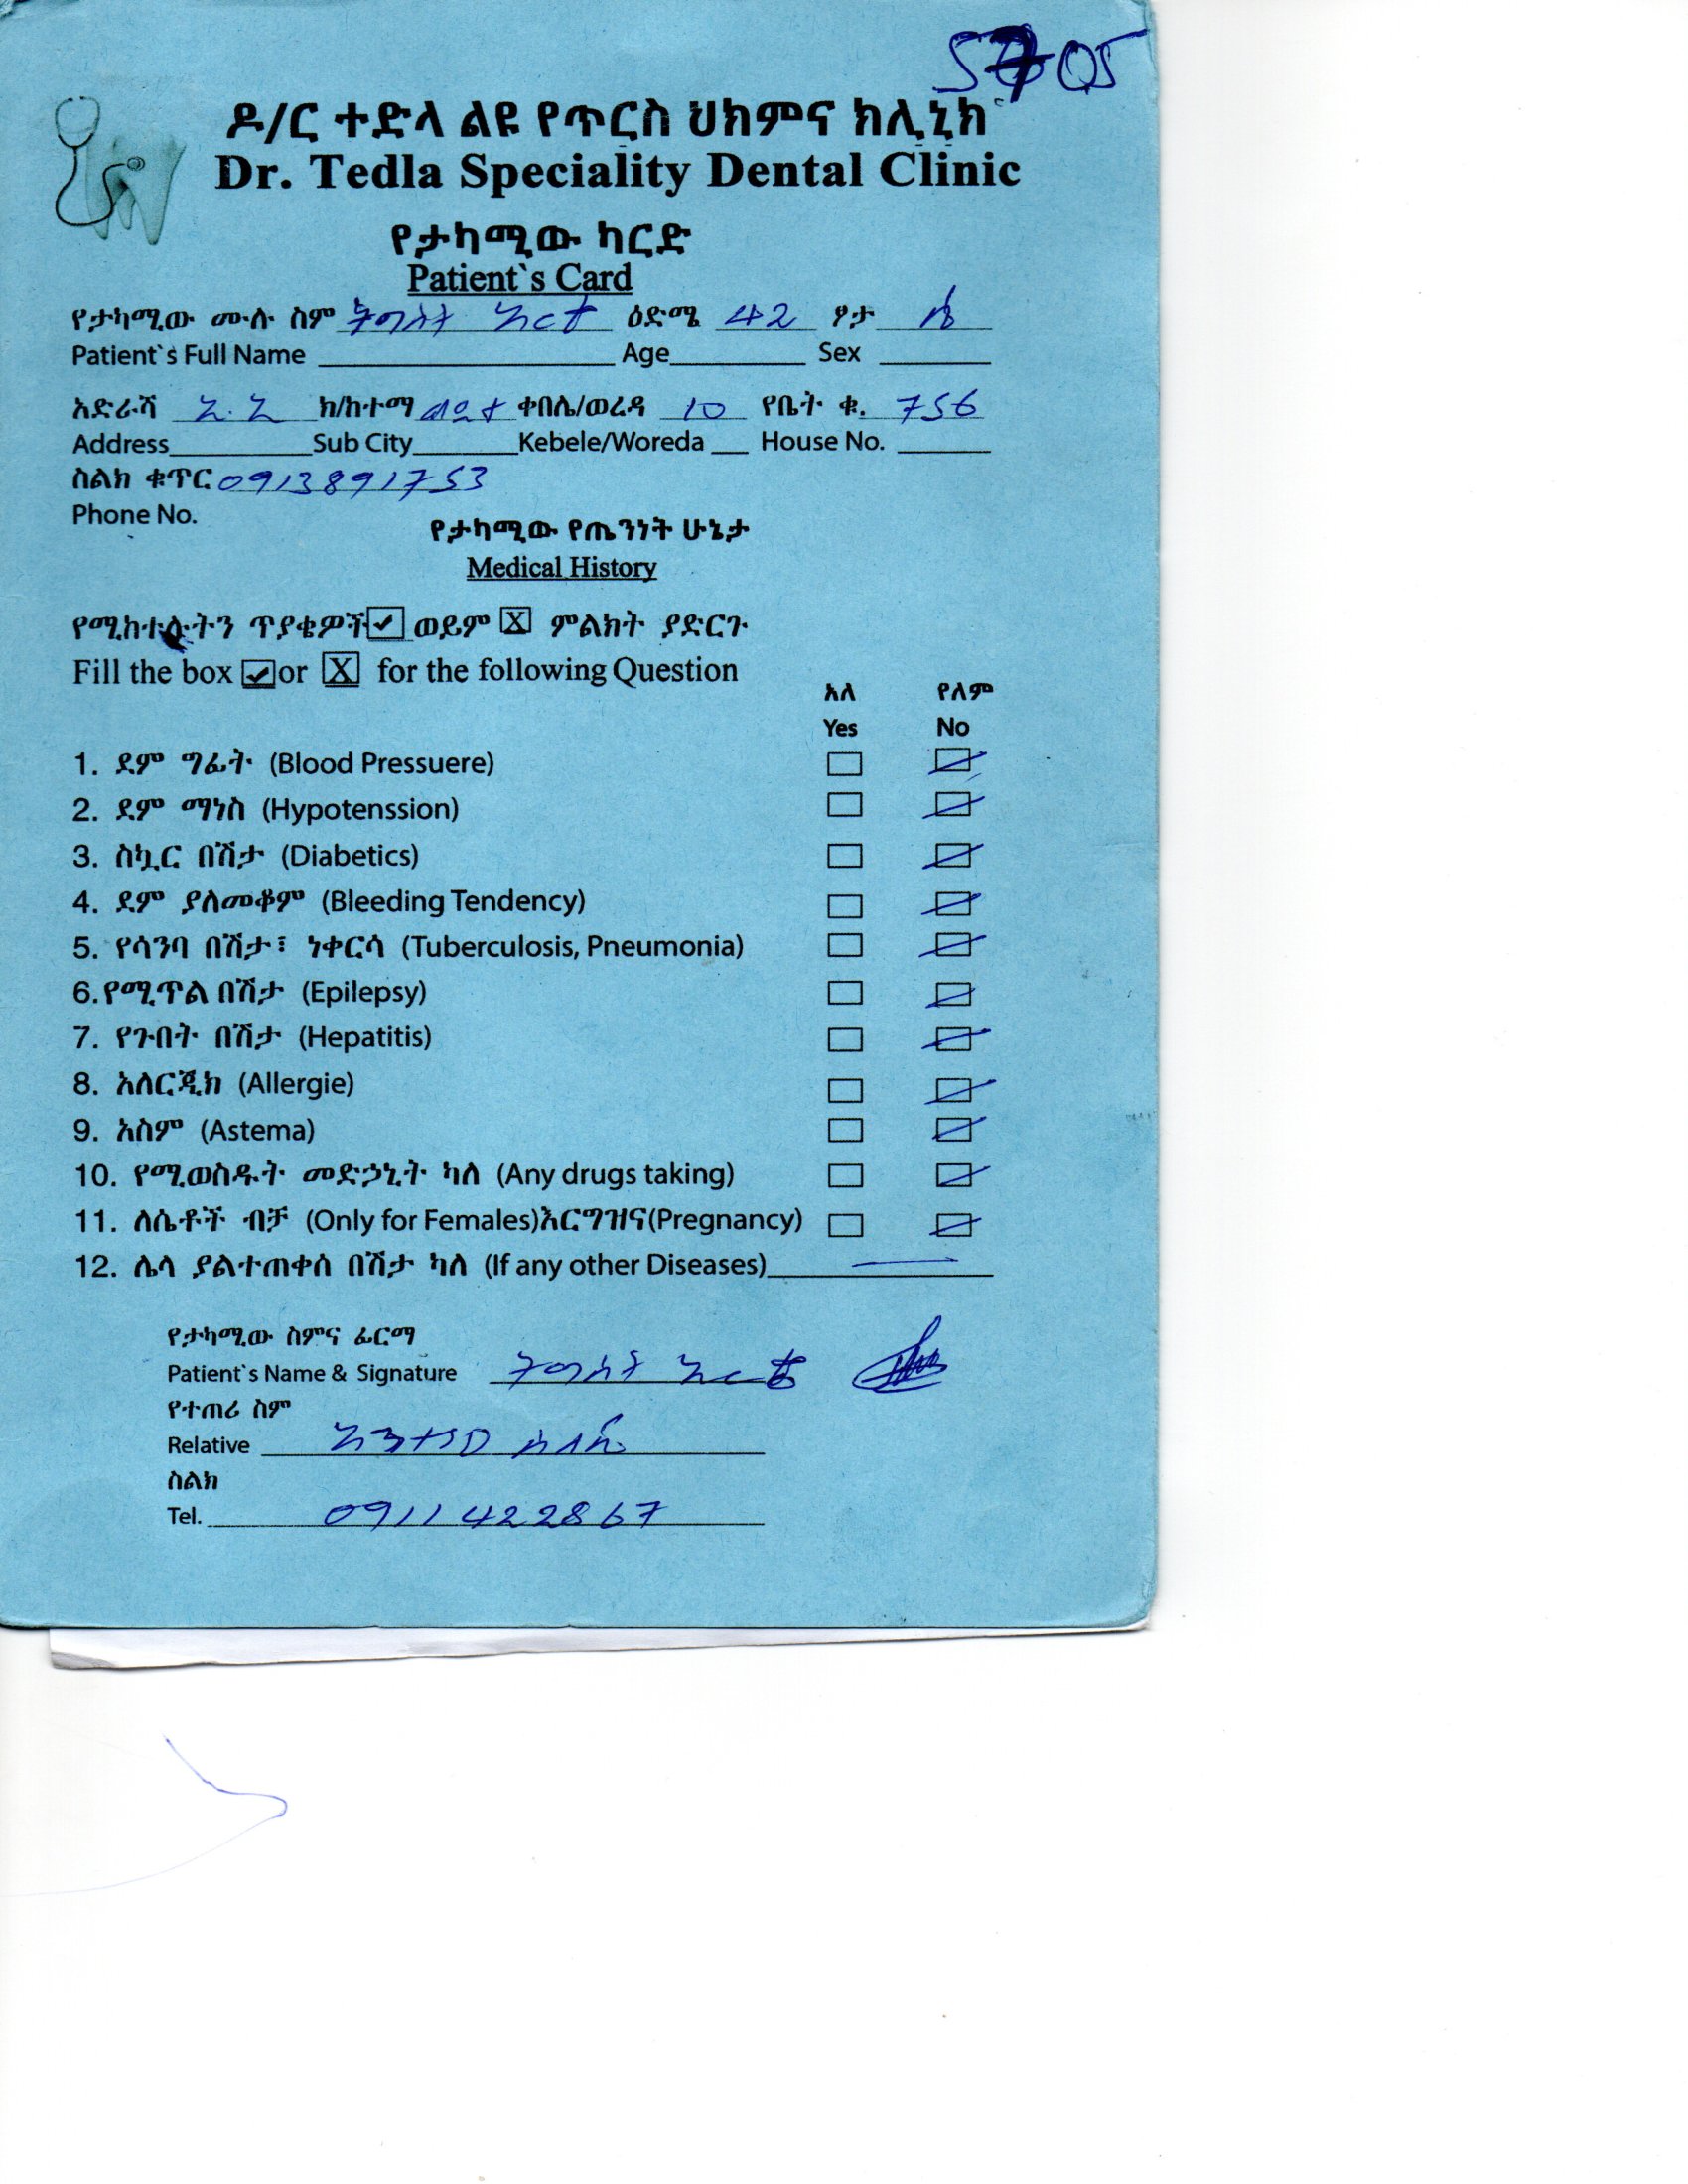 5705
ዶ/ር ተድላ ልዩ የጥርስ ህክምና ክሊኒክ
Dr. Tedla Speciality Dental Clinic
የታካሚው ካርድ
Patient`s Card
የታካሚው ሙሉ ስም ትግስት ዕድሜ 42 ፆታ ሴ
Patient`s Full Name Age Sex
አድራሻ አ.አ ክ/ከተማ ቀበሌ/ወረዳ 10 የቤት ቁ. 756
Address Sub City Kebele/Woreda House No.
ስልክ ቁጥር 0913891753
Phone No.
የታካሚው የጤንነት ሁኔታ
Medical History
የሚከተሉትን ጥያቄዎች ✓ ወይም X ምልክት ያድርጉ
Fill the box ✓ or X for the following Question
አለ የለም
Yes No
1. ደም ግፊት (Blood Pressuere)
2. ደም ማነስ (Hypotenssion)
3. ስኳር በሽታ (Diabetics)
4. ደም ያለመቆም (Bleeding Tendency)
5. የሳንባ በሽታ፣ ነቀርሳ (Tuberculosis, Pneumonia)
6.የሚጥል በሽታ (Epilepsy)
7. የጉበት በሽታ (Hepatitis)
8. አለርጂክ (Allergie)
9. አስም (Astema)
10. የሚወስዱት መድኃኒት ካለ (Any drugs taking)
11. ለሴቶች ብቻ (Only for Females)እርግዝና(Pregnancy)
12. ሌላ ያልተጠቀሰ በሽታ ካለ (If any other Diseases)
የታካሚው ስምና ፊርማ
Patient`s Name & Signature ትግስት
የተጠሪ ስም
Relative
ስልክ
Tel. 0911422867